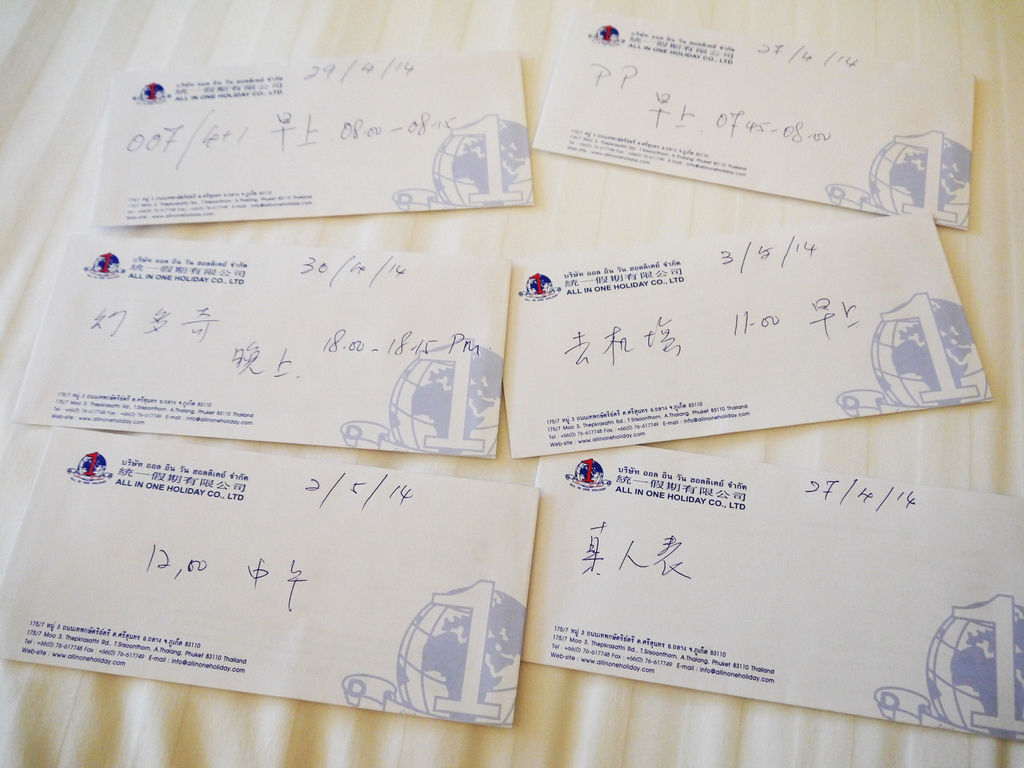 29/4/14
บริษัท ออล อิน วัน ฮอลลิเดย์ จำกัด
統一假期有限公司
ALL IN ONE HOLIDAY CO., LTD
007/4+1 早上 08.00-08.15
175/7 หมู่ 3 ถนนเทพกษัตรีย์ตรี ต.ศรีสุนทร อ.ถลาง จ.ภูเก็ต 83110
175/7 Moo 3, Thepkrasattri Rd., T.Srisoonthorn, A.Thalang, Phuket 83110 Thailand
Tel : +66(0) 76-617748 Fax : +66(0) 76-617749 E-mail : info@allinoneholiday.com
Web-site : www.allinoneholiday.com
27/4/14
บริษัท ออล อิน วัน ฮอลลิเดย์ จำกัด
統一假期有限公司
ALL IN ONE HOLIDAY CO., LTD
PP
早上. 0745-08.00
175/7 หมู่ 3 ถนนเทพกษัตรีย์ตรี ต.ศรีสุนทร อ.ถลาง จ.ภูเก็ต 83110
175/7 Moo 3, Thepkrasattri Rd., T.Srisoonthorn, A.Thalang, Phuket 83110 Thailand
Tel : +66(0) 76-617748 Fax : +66(0) 76-617749 E-mail : info@allinoneholiday.com
Web-site : www.allinoneholiday.com
30/4/14
บริษัท ออล อิน วัน ฮอลลิเดย์ จำกัด
統一假期有限公司
ALL IN ONE HOLIDAY CO., LTD
幻多奇
晚上. 18.00-18.15 Pm.
175/7 หมู่ 3 ถนนเทพกษัตรีย์ตรี ต.ศรีสุนทร อ.ถลาง จ.ภูเก็ต 83110
175/7 Moo 3, Thepkrasattri Rd., T.Srisoonthorn, A.Thalang, Phuket 83110 Thailand
Tel : +66(0) 76-617748 Fax : +66(0) 76-617749 E-mail : info@allinoneholiday.com
Web-site : www.allinoneholiday.com
3/5/14
บริษัท ออล อิน วัน ฮอลลิเดย์ จำกัด
統一假期有限公司
ALL IN ONE HOLIDAY CO., LTD
去机场 11.00 早上
175/7 หมู่ 3 ถนนเทพกษัตรีย์ตรี ต.ศรีสุนทร อ.ถลาง จ.ภูเก็ต 83110
175/7 Moo 3, Thepkrasattri Rd., T.Srisoonthorn, A.Thalang, Phuket 83110 Thailand
Tel : +66(0) 76-617748 Fax : +66(0) 76-617749 E-mail : info@allinoneholiday.com
Web-site : www.allinoneholiday.com
2/5/14
บริษัท ออล อิน วัน ฮอลลิเดย์ จำกัด
統一假期有限公司
ALL IN ONE HOLIDAY CO., LTD
12,00 中午
175/7 หมู่ 3 ถนนเทพกษัตรีย์ตรี ต.ศรีสุนทร อ.ถลาง จ.ภูเก็ต 83110
175/7 Moo 3, Thepkrasattri Rd., T.Srisoonthorn, A.Thalang, Phuket 83110 Thailand
Tel : +66(0) 76-617748 Fax : +66(0) 76-617749 E-mail : info@allinoneholiday.com
Web-site : www.allinoneholiday.com
27/4/14
บริษัท ออล อิน วัน ฮอลลิเดย์ จำกัด
統一假期有限公司
ALL IN ONE HOLIDAY CO., LTD
人表
175/7 หมู่ 3 ถนนเทพกษัตรีย์ตรี ต.ศรีสุนทร อ.ถลาง จ.ภูเก็ต 83110
175/7 Moo 3, Thepkrasattri Rd., T.Srisoonthorn, A.Thalang, Phuket 83110 Thailand
Tel : +66(0) 76-617748 Fax : +66(0) 76-617749 E-mail : info@allinoneholiday.com
Web-site : www.allinoneholiday.com